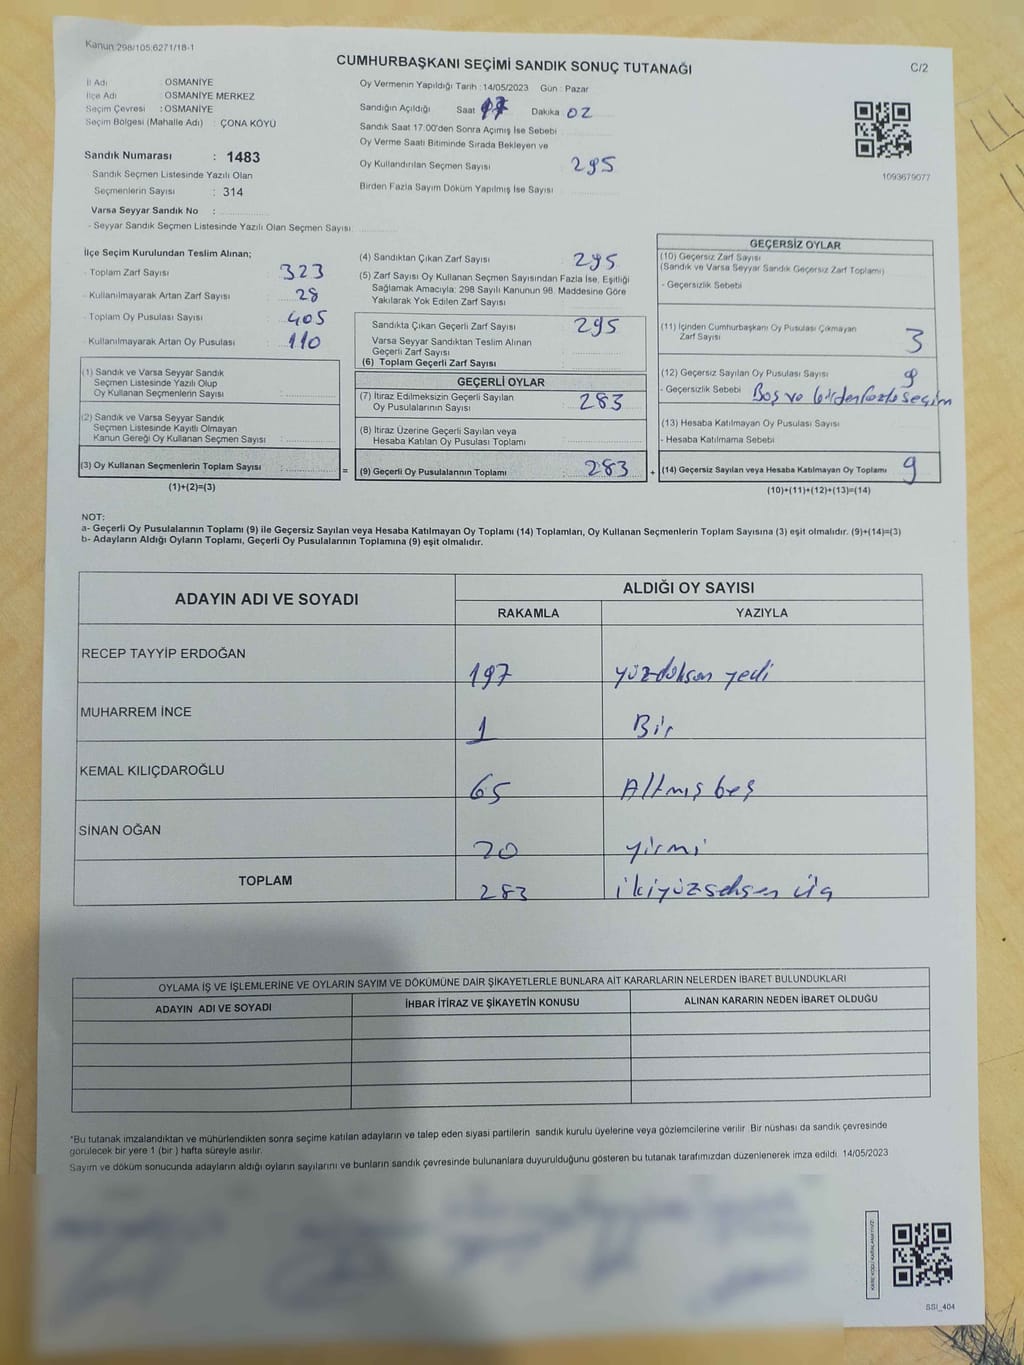 Kanun:298/105,6271/18-1
CUMHURBAŞKANI SEÇİMİ SANDIK SONUÇ TUTANAĞI
C/2
İl Adı : OSMANİYE
İlçe Adı : OSMANİYE MERKEZ
Seçim Çevresi : OSMANİYE
Seçim Bölgesi (Mahalle Adı) : ÇONA KÖYÜ
Sandık Numarası : 1483
Sandık Seçmen Listesinde Yazılı Olan
Seçmenlerin Sayısı : 314
Varsa Seyyar Sandık No :
- Seyyar Sandık Seçmen Listesinde Yazılı Olan Seçmen Sayısı:
Oy Vermenin Yapıldığı Tarih : 14/05/2023 Gün : Pazar
Sandığın Açıldığı Saat 17 Dakika 02
Sandık Saat 17:00'den Sonra Açılmış İse Sebebi
Oy Verme Saati Bitiminde Sırada Bekleyen ve
Oy Kullandırılan Seçmen Sayısı 295
Birden Fazla Sayım Döküm Yapılmış İse Sayısı
1093679077
İlçe Seçim Kurulundan Teslim Alınan;
- Toplam Zarf Sayısı 323
- Kullanılmayarak Artan Zarf Sayısı 28
- Toplam Oy Pusulası Sayısı 405
- Kullanılmayarak Artan Oy Pusulası 110
(1) Sandık ve Varsa Seyyar Sandık
Seçmen Listesinde Yazılı Olup
Oy Kullanan Seçmenlerin Sayısı :
(2) Sandık ve Varsa Seyyar Sandık
Seçmen Listesinde Kayıtlı Olmayan
Kanun Gereği Oy Kullanan Seçmen Sayısı :
(3) Oy Kullanan Seçmenlerin Toplam Sayısı : =
(1)+(2)=(3)
(4) Sandıktan Çıkan Zarf Sayısı 295
(5) Zarf Sayısı Oy Kullanan Seçmen Sayısından Fazla İse, Eşitliği
Sağlamak Amacıyla; 298 Sayılı Kanunun 98. Maddesine Göre
Yakılarak Yok Edilen Zarf Sayısı
Sandıkta Çıkan Geçerli Zarf Sayısı 295
Varsa Seyyar Sandıktan Teslim Alınan
Geçerli Zarf Sayısı
(6) Toplam Geçerli Zarf Sayısı
GEÇERLİ OYLAR
(7) İtiraz Edilmeksizin Geçerli Sayılan
Oy Pusulalarının Sayısı : 283
(8) İtiraz Üzerine Geçerli Sayılan veya
Hesaba Katılan Oy Pusulası Toplamı
(9) Geçerli Oy Pusulalarının Toplamı : 283 +
GEÇERSİZ OYLAR
(10) Geçersiz Zarf Sayısı
(Sandık ve Varsa Seyyar Sandık Geçersiz Zarf Toplamı)
- Geçersizlik Sebebi
(11) İçinden Cumhurbaşkanı Oy Pusulası Çıkmayan
Zarf Sayısı 3
(12) Geçersiz Sayılan Oy Pusulası Sayısı 9
- Geçersizlik Sebebi Boş ve birden fazla seçim
(13) Hesaba Katılmayan Oy Pusulası Sayısı
- Hesaba Katılmama Sebebi
(14) Geçersiz Sayılan veya Hesaba Katılmayan Oy Toplamı 9
(10)+(11)+(12)+(13)=(14)
NOT:
a- Geçerli Oy Pusulalarının Toplamı (9) ile Geçersiz Sayılan veya Hesaba Katılmayan Oy Toplamı (14) Toplamları, Oy Kullanan Seçmenlerin Toplam Sayısına (3) eşit olmalıdır. (9)+(14)=(3)
b- Adayların Aldığı Oyların Toplamı, Geçerli Oy Pusulalarının Toplamına (9) eşit olmalıdır.
ADAYIN ADI VE SOYADI
ALDIĞI OY SAYISI
RAKAMLA YAZIYLA
RECEP TAYYİP ERDOĞAN 197 yüzdoksan yedi
MUHARREM İNCE 1 Bir
KEMAL KILIÇDAROĞLU 65 Altmış beş
SİNAN OĞAN 20 yirmi
TOPLAM 283 ikiyüzseksen üç
OYLAMA İŞ VE İŞLEMLERİNE VE OYLARIN SAYIM VE DÖKÜMÜNE DAİR ŞİKAYETLERLE BUNLARA AİT KARARLARIN NELERDEN İBARET BULUNDUKLARI
ADAYIN ADI VE SOYADI İHBAR İTİRAZ VE ŞİKAYETİN KONUSU ALINAN KARARIN NEDEN İBARET OLDUĞU
*Bu tutanak imzalandıktan ve mühürlendikten sonra seçime katılan adayların ve talep eden siyasi partilerin sandık kurulu üyelerine veya gözlemcilerine verilir. Bir nüshası da sandık çevresinde
görülecek bir yere 1 (bir ) hafta süreyle asılır.
Sayım ve döküm sonucunda adayların aldığı oyların sayılarını ve bunların sandık çevresinde bulunanlara duyurulduğunu gösteren bu tutanak tarafımızdan düzenlenerek imza edildi. 14/05/2023
SSI_404